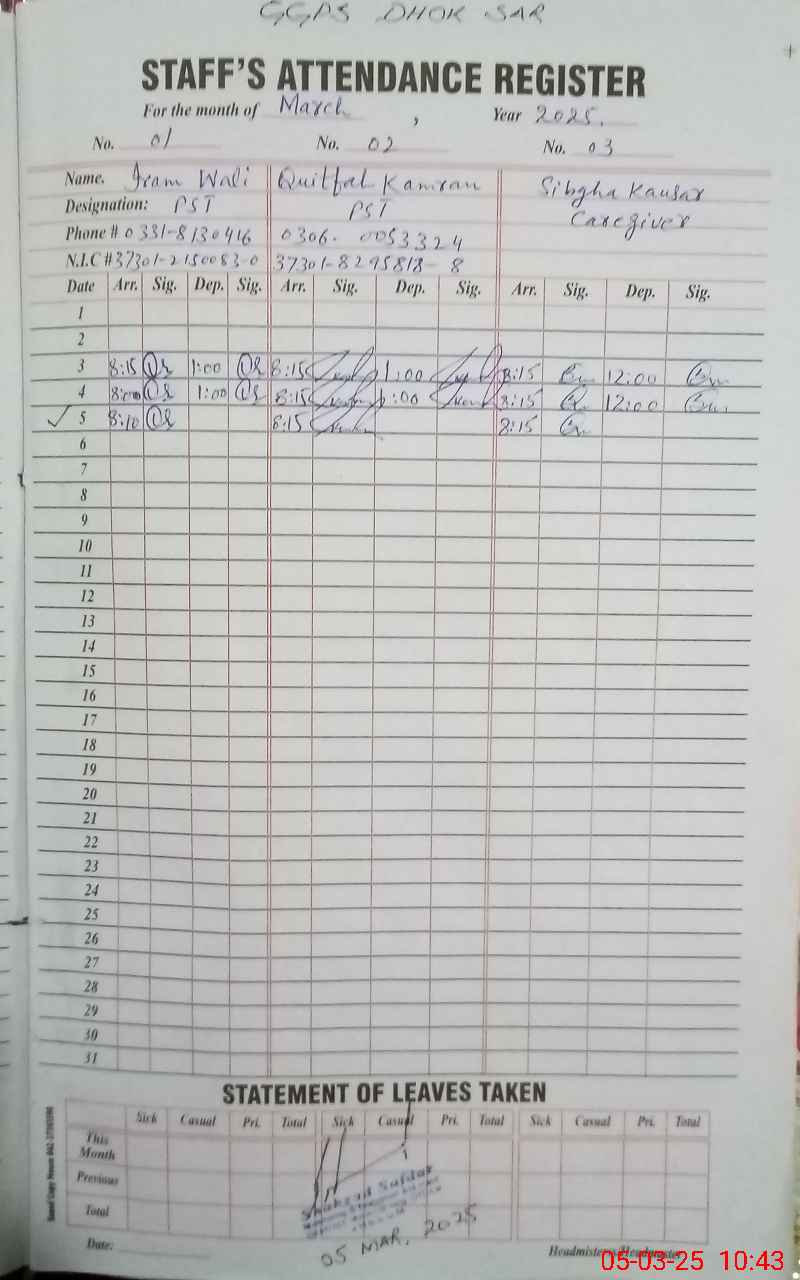 GGPS DHOK SAR
STAFF'S ATTENDANCE REGISTER
For the month of March, Year 2025.
No. 01 No. 02 No. 03
Name. Iram Wali Quitbal Kamran Sibgha Kausar
Designation: PST PST Caregiver
Phone # 0331-8130416 0306-0053324
N.I.C # 37301-2150083-0 37301-8295818-8
Date Arr. Sig. Dep. Sig. Arr. Sig. Dep. Sig. Arr. Sig. Dep. Sig.
1
2
3 8:15 1:00 8:15 1:00 8:15 12:00
4 8:00 1:00 8:15 1:00 8:15 12:00
5 8:10 8:15 8:15
6
7
8
9
10
11
12
13
14
15
16
17
18
19
20
21
22
23
24
25
26
27
28
29
30
31
STATEMENT OF LEAVES TAKEN
Sick Casual Pri. Total Sick Casual Pri. Total Sick Casual Pri. Total
This Month
Previous
Total
Shahzad Safdar
05 MAR. 2025
Date: Headmistress/Headmaster
05-03-25 10:43